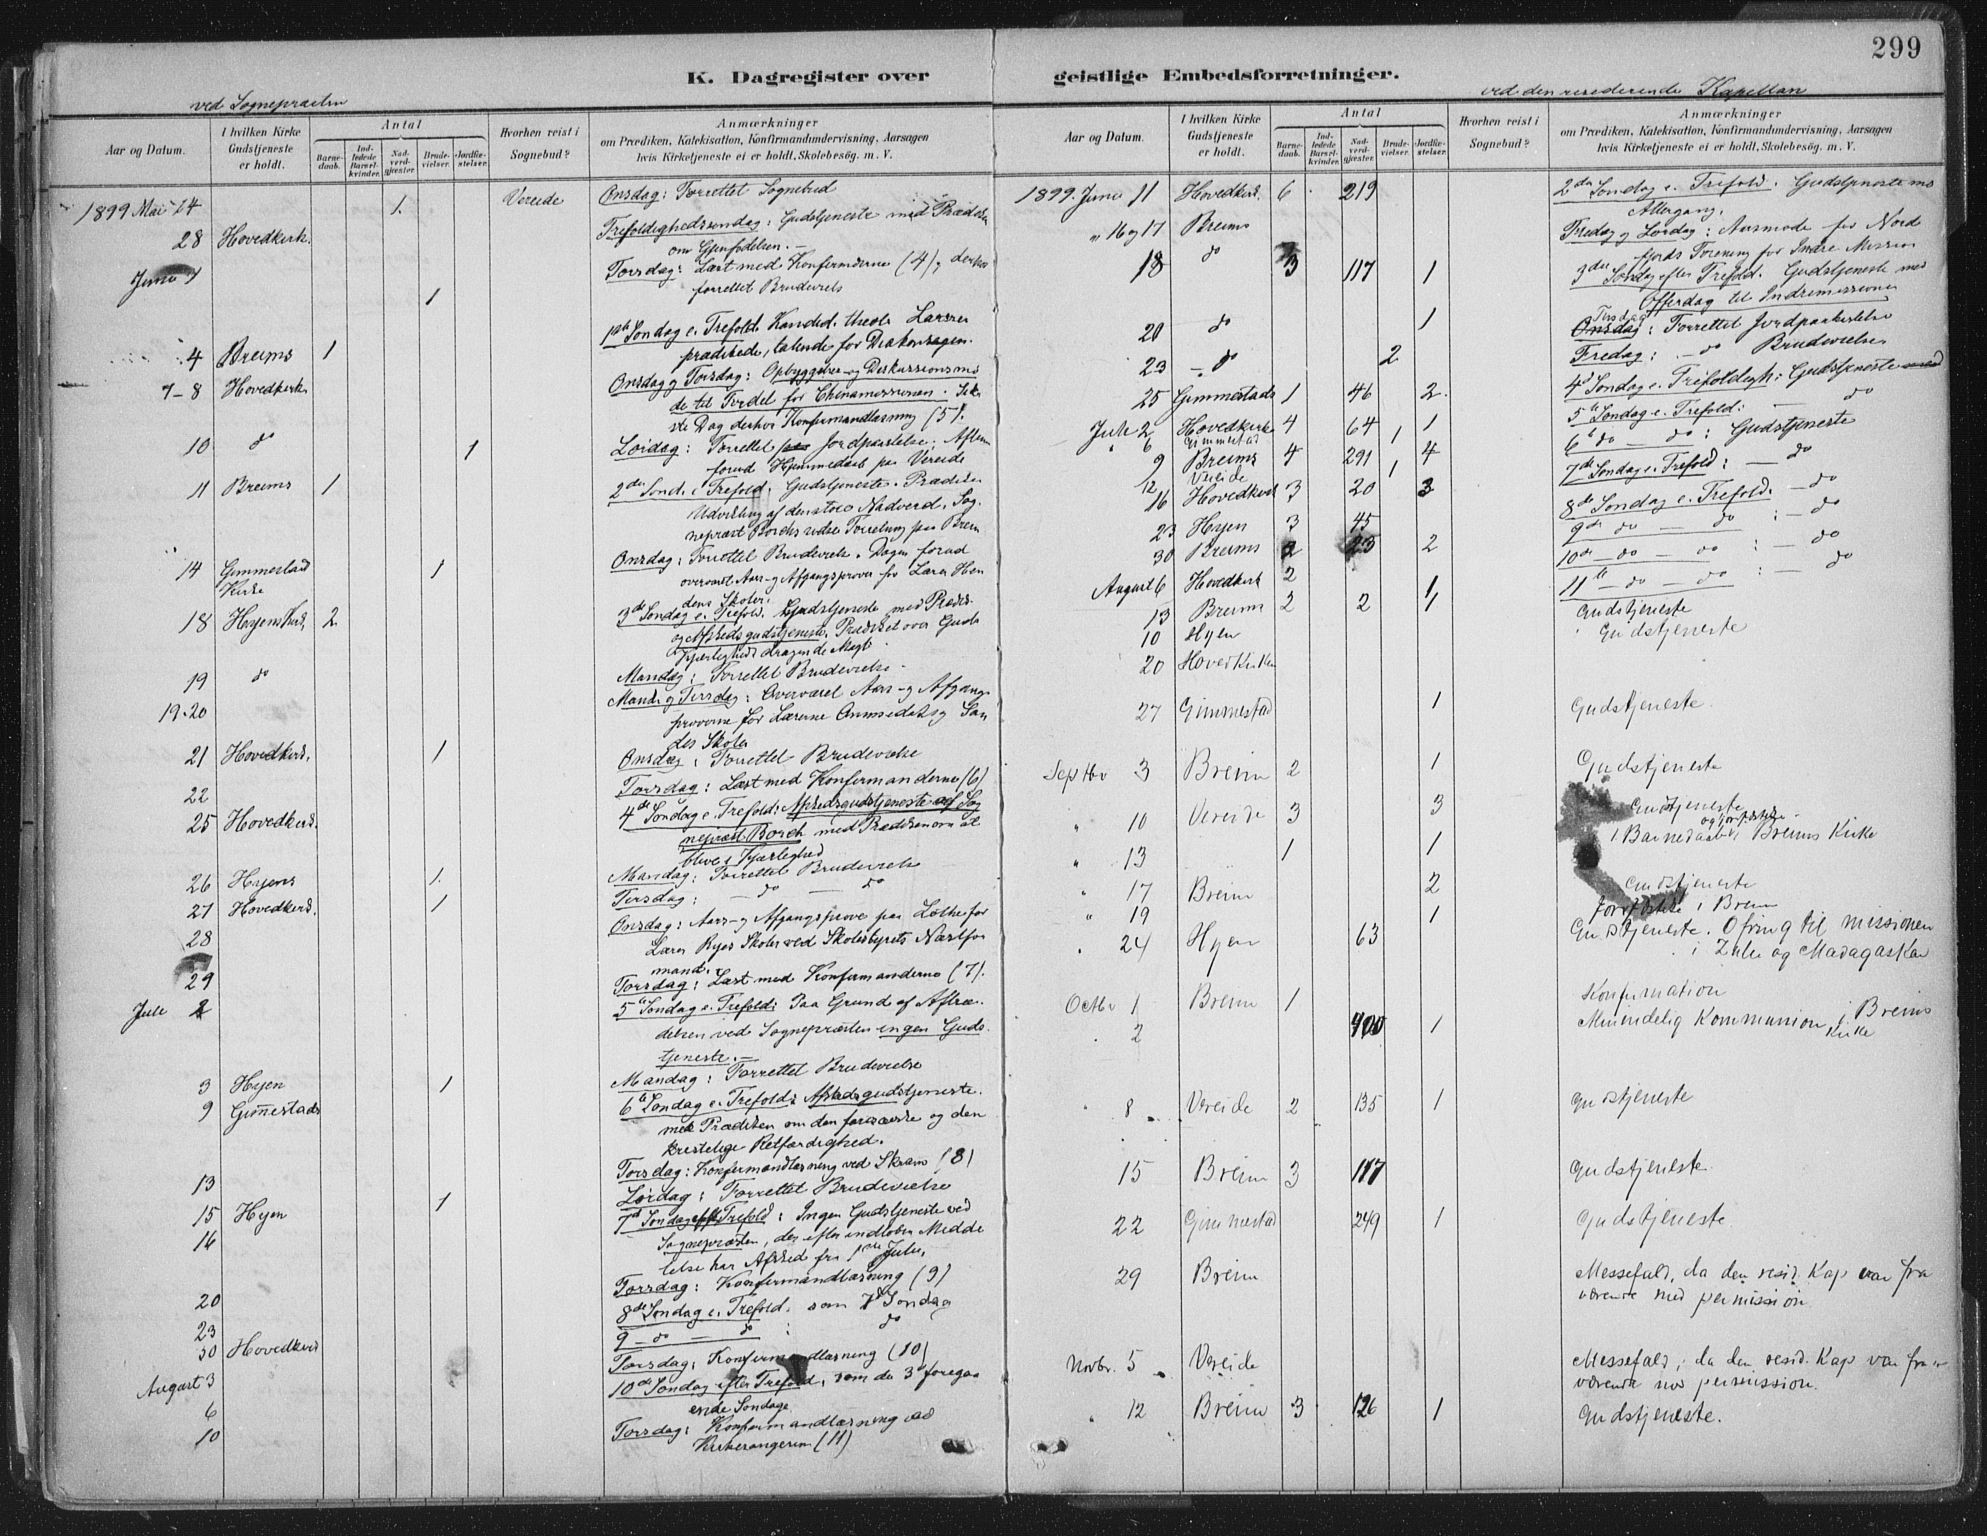 299
K. Dagregister over geistlige Embedsforretninger.
ved Sognepræsten
Aar og Datum.
I hvilken Kirke Gudstjeneste er holdt.
Antal
Barnedaab.
Indledede Barselkvinder.
Nadverdgjæster.
Brudevielser.
Jordfæstelser.
Hvorhen reist i Sognebud?
Anmærkninger
om Prædiken, Katekisation, Konfirmandundervisning, Aarsagen
hvis Kirketjeneste ei er holdt, Skolebesøg. m. V.
1899 Mai 24 1. Vereide Onsdag: Forrettet Sognebud
28 Hovedkirk. Trefoldighedssøndag: Gudstjeneste med Prædiken
om Gjenfødelsen.
Juni 1 Torsdag: Læst med Konfirmanderne (4), derhos
forrettet Brudevielse 1
4 Breims 1 1ste Søndag e. Trefold. Kandid. theol. Larsen
prædikede, talende for Diakonsagen.
7-8 Hovedkirk Onsdag og Torsdag: Opbyggelse- og Diskussionsmø
de til Fordel for Chinamissionen. Sid
ste Dag derhos Konfirmandlæsning (5).
10 do 1 Lørdag: Forrettet Jordpaakastelse. Aften
forud Hjemmedaab paa Vereide
11 Breims 1 2den Sønd. e. Trefold. Gudstjeneste. Prædiken
Udvikling af den store Nadverd. Sog
nepræst Borchs sidste Forretning paa Breim
14 Gimmestad Kirke 1 Onsdag: Forrettet Brudevielse. Dagen forud
overværet Aars- og Afgangsprøver for Lærer
dens Skoler.
18 Hyens Kirk. 2 3de Søndag e. Trefold. Gudstjeneste med Prædik.
og Afskedsgudstjeneste. Prædiket over Guds
Kjærligheds dragende Magt.
19 do Mandag: Forrettet Brudevielse.
19-20 Mand. og Tirsdag: Overværet Aars- og Afgangs
prøverne for Lærerne Ommedal og San
des Skoler
21 Hovedkirk. 1 Onsdag: Forrettet Brudevielse
22 Torsdag: Læst med Konfirmanderne (6)
25 Hovedkirk. 4de Søndag e. Trefold: Afskedsgudstjeneste af Sog
nepræst Borch med Prædiken om at
blive i Kjærlighed
26 Hyens 1. Mandag: Forrettet Brudevielse
27 Hovedkirk. 1 Tirsdag: do — do
28 Onsdag: Aars- og Afgangsprøve paa Lothe for
Lærer Ryes Skoler ved Skolestyrets Næstfor
mand.
29 Torsdag: Læst med Konfirmanderne (7).
Juli 2 5te Søndag e. Trefold: Paa Grund af Aftræ
delsen ved Sognepræsten ingen Guds
tjeneste.
3 Hyen 1 Mandag: Forrettet Brudevielse
9 Gimestads 6te Søndag e. Trefold: Afskedsgudstjeneste.
med Prædiken om den farisæiske og den
kristelige Retfærdighed.
13 Torsdag: Konfirmandlæsning ved Skram (8)
15 Hyen 1 Lørdag: Forrettet Brudevielse
16 7de Søndag eft. Trefold: Ingen Gudstjeneste ved
Sognepræsten, der efter indløben Medde
lelse har Afsked fra 1ste Juli.
20 Torsdag: Konfirmandlæsning (9)
23 8de Søndag e. Trefold. som 7de Søndag
30 Hovedkirk 9 — do — do : do
August 3 Torsdag: Konfirmandlæsning (10)
6 10de Søndag efter Trefold, som de 3 foregaa
ende Søndage
10 Torsdag: Konfirmandlæsning ved
(11)
ved den residerende Kapellan
Aar og Datum.
I hvilken Kirke Gudstjeneste er holdt.
Antal
Barnedaab.
Indledede Barselkvinder.
Nadverdgjæster.
Brudevielser.
Jordfæstelser.
Hvorhen reist i Sognebud?
Anmærkninger
om Prædiken, Katekisation, Konfirmandundervisning, Aarsagen
hvis Kirketjeneste ei er holdt, Skolebesøg. m. V.
1899. Juni 11 Hovedkirk. 6 219 2den Søndag e. Trefold. Gudstjeneste med
Altergang.
" 16 og 17 Breims Fredag og Lørdag: Aarsmøde for Nord
fjords Forening for Indre Mission
18 do 3 117 1 3die Søndag efter Trefold. Gudstjeneste med
Offerdag til Indremissionen
20 do 1 Tirsdag Onsdag: Forrettet Jordpaakastelse
23 - do 2 Fredag: - do Brudevielse
25 Gimmestads 1 46 2. 4de Søndag e. Trefoldigh: Gudstjeneste med
Juli 2 Hovedkirke 4 64 1 5te Søndag e. Trefold: — do
6 Gimmestad 1 6te do — do: Gudstjeneste
9 Breims 4 291 4 7de Søndag e. Trefold: — do
12 Vereide 1
16 Hovedkirk 3 20 3 8de Søndag e. Trefold. — do
23 Hyen 3 45 9de do — do : — do
30 Breims 2 23 2 10de — do — do : — do
August 6 Hovedkirk 2 1 11te — do — do : — do
13 Breims 2 2 1 Gudstjeneste
10 Hyen Gudstjeneste
20 Hovedkirken
27 Gimmestad 1 Gudstjeneste.
Septbr 3 Breim 2 1 Gudstjeneste
" 10 Vereide 3 3 Gudstjeneste
" 13 1 1 1 Barnedaab og Jordfæstelse i Breims Kirke
" 17 Breim 2 Gudstjeneste
" 19 1 Jordfæstelse i Breim
" 24 Hyen 63 Gudstjeneste. Ofring til missionen
i Zulu og Madagaskar
Octbr 1 Breim 1 Konfirmation
" 2 400 1 Almindelig Kommunion i Breims Kirke
" 8 Vereide 2 135 1 Gudstjeneste
15 Breim 3 117 Gudstjeneste.
22 Gimmestad 249 1 Gudstjeneste.
29 Breim Messefald, da den resid. Kap var fra
værende med permission.
Novbr. 5 Vereide Messefald, da den resid. Kap var fra
værende med permission.
" 12 Breim 3 126 1 Gudstjeneste.